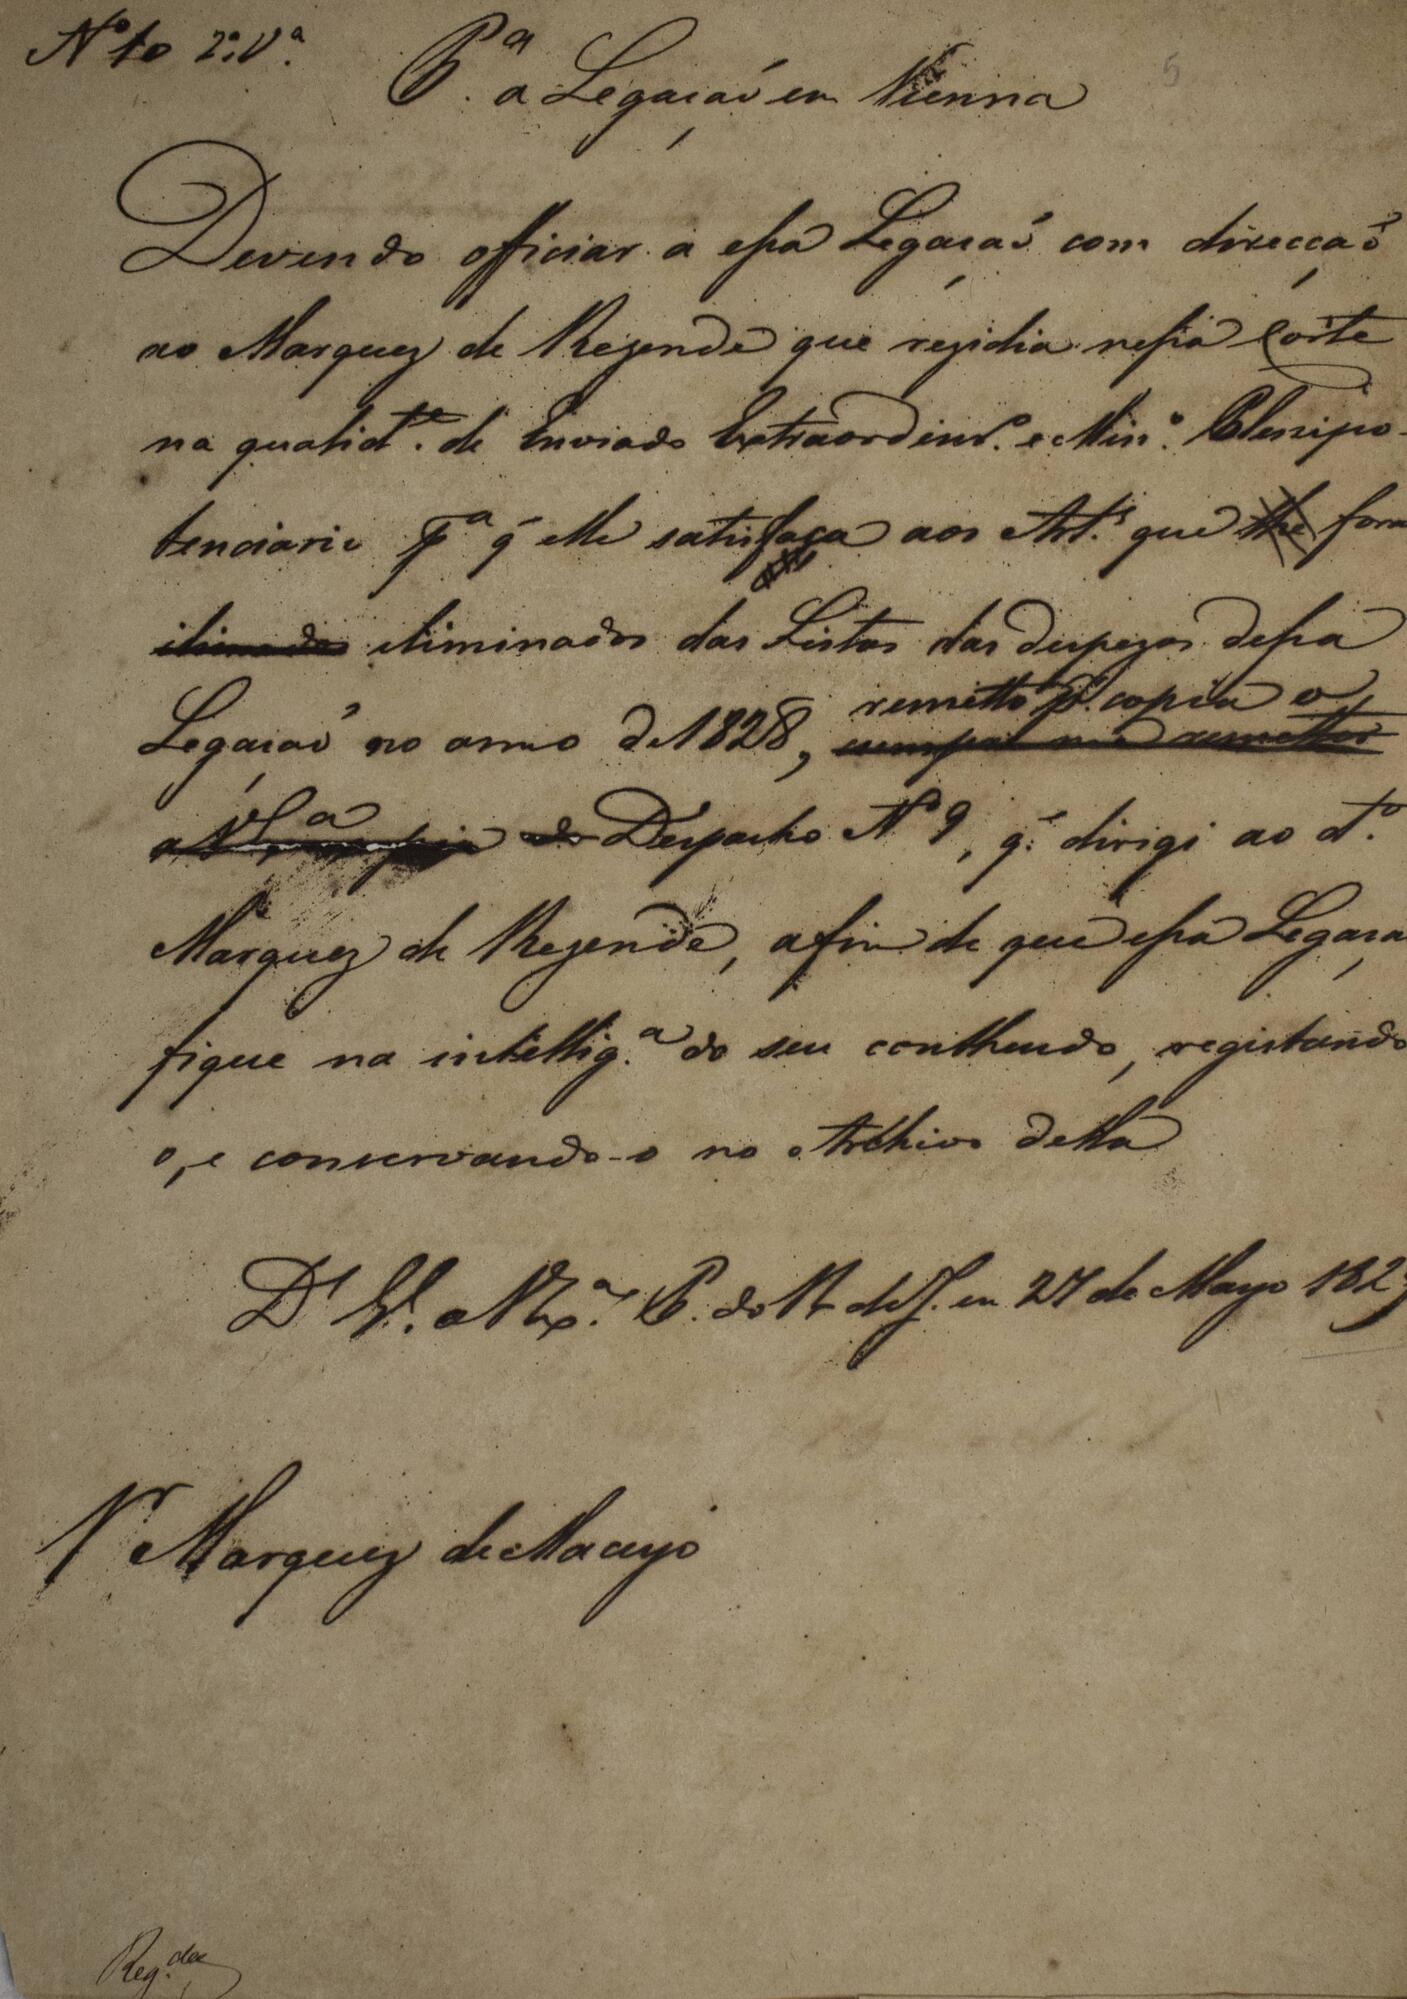 Nº 10 2ª V.ª
5
P.ª a Legaçaõ em Vienna
Devendo officiar a essa Legaçaõ com direcçaõ
ao Marquez de Rezende que rezidia nessa Corte
na qualid.e de Enviado Extraordinr.º e Min.º Plenipo-
tenciario p.ª q̃ elle satisfaça aos Art.s que lhe fora
eliminados das Listas das despezas dessa
remetto p.r copia o
Legaçaõ no anno de 1828, cumpre me remetter
a V.ª copia do Despacho Nº 9, q.e dirigi ao d.º
Marquez de Rezende, afim de que essa Legaça
fique na intellig.ª do seu contheudo, registando
o, e conservando-o no Archivo della
D.s G.e a V. Ex.ª P. do R. de J. em 27 de Mayo 1829
S.r Marquez de Maceyo
Reg.da